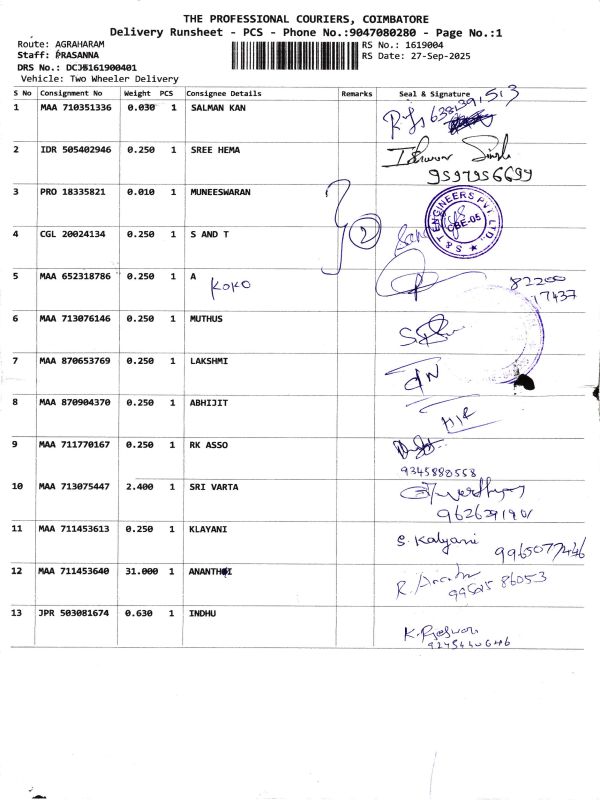 THE PROFESSIONAL COURIERS, COIMBATORE
Delivery Runsheet - PCS - Phone No.:9047080280 - Page No.:1
Route: AGRAHARAM RS No.: 1619004
Staff: PRASANNA RS Date: 27-Sep-2025
DRS No.: DCJ5161900401
Vehicle: Two Wheeler Delivery
S No Consignment No Weight PCS Consignee Details Remarks Seal & Signature
1 MAA 710351336 0.030 1 SALMAN KAN
2 IDR 505402946 0.250 1 SREE HEMA
9597956699
3 PRO 18335821 0.010 1 MUNEESWARAN
S & T ENGINEERS PVT LTD. CBE-05
4 CGL 20024134 0.250 1 S AND T 2
5 MAA 652318786 0.250 1 A
KOKO 82200
17437
6 MAA 713076146 0.250 1 MUTHUS
7 MAA 870653769 0.250 1 LAKSHMI
8 MAA 870904370 0.250 1 ABHIJIT
9 MAA 711770167 0.250 1 RK ASSO
9345888558
10 MAA 713075447 2.400 1 SRI VARTA
11 MAA 711453613 0.250 1 KLAYANI S. Kalyani
12 MAA 711453640 31.000 1
13 JPR 503081674 0.630 1 INDHU